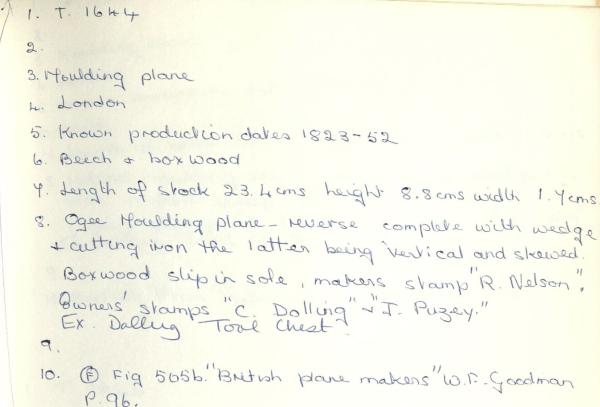 1. T. 1644
2.
3. Moulding plane
4. London
5. Known production dates 1823-52
6. Beech & boxwood
7. Length of stock 23.4cms height 8.8cms width 1.7cms
8. Ogee Moulding plane - reverse complete with wedge
& cutting iron the latter being vertical and skewed.
Boxwood slip in sole, makers stamp "R. Nelson",
Owners' stamps "C. Dalling" & "J. Puzey."
Ex. Dalling Tool Chest.
9.
10. (F) Fig 565b. "British plane makers" W.F. Goodman
P. 96.